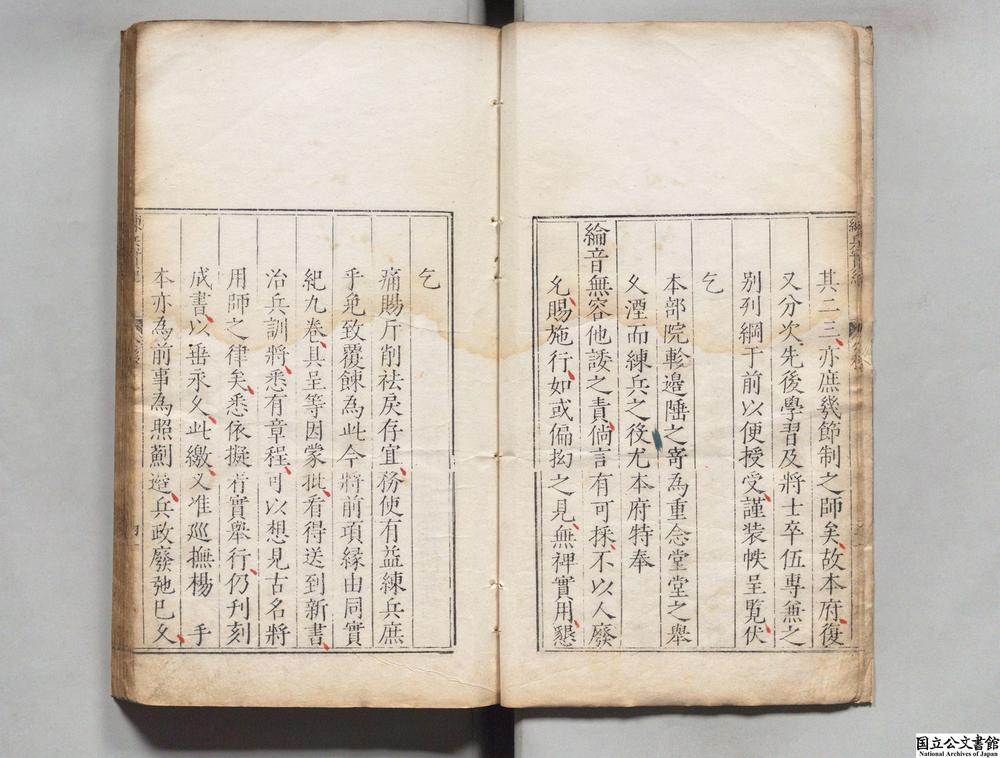 練兵實紀
其二三亦庶幾節制之師矣故本府復
又分次先後學習及將士卒伍專兼之
別列綱于前以便授受謹装帙呈覧伏
乞
本部院軫邉陲之寄為重念堂堂之舉
久湮而練兵之役尤本府特奉
綸音無容他諉之責倘言有可採不以人廢
允賜施行如或偏拘之見無裨實用懇
乞
痛賜斤削祛戾存宜務使有益練兵庶
乎免致覆餗為此今將前項縁由同實
紀九卷具呈等因蒙批看得送到新書
治兵訓將悉有章程可以想見古名將
用師之律矣悉依擬着實舉行仍刊刻
成書以垂永久此繳又准巡撫楊 手
本亦為前事為照薊邉兵政廢弛已久
四
国立公文書館
National Archives of Japan